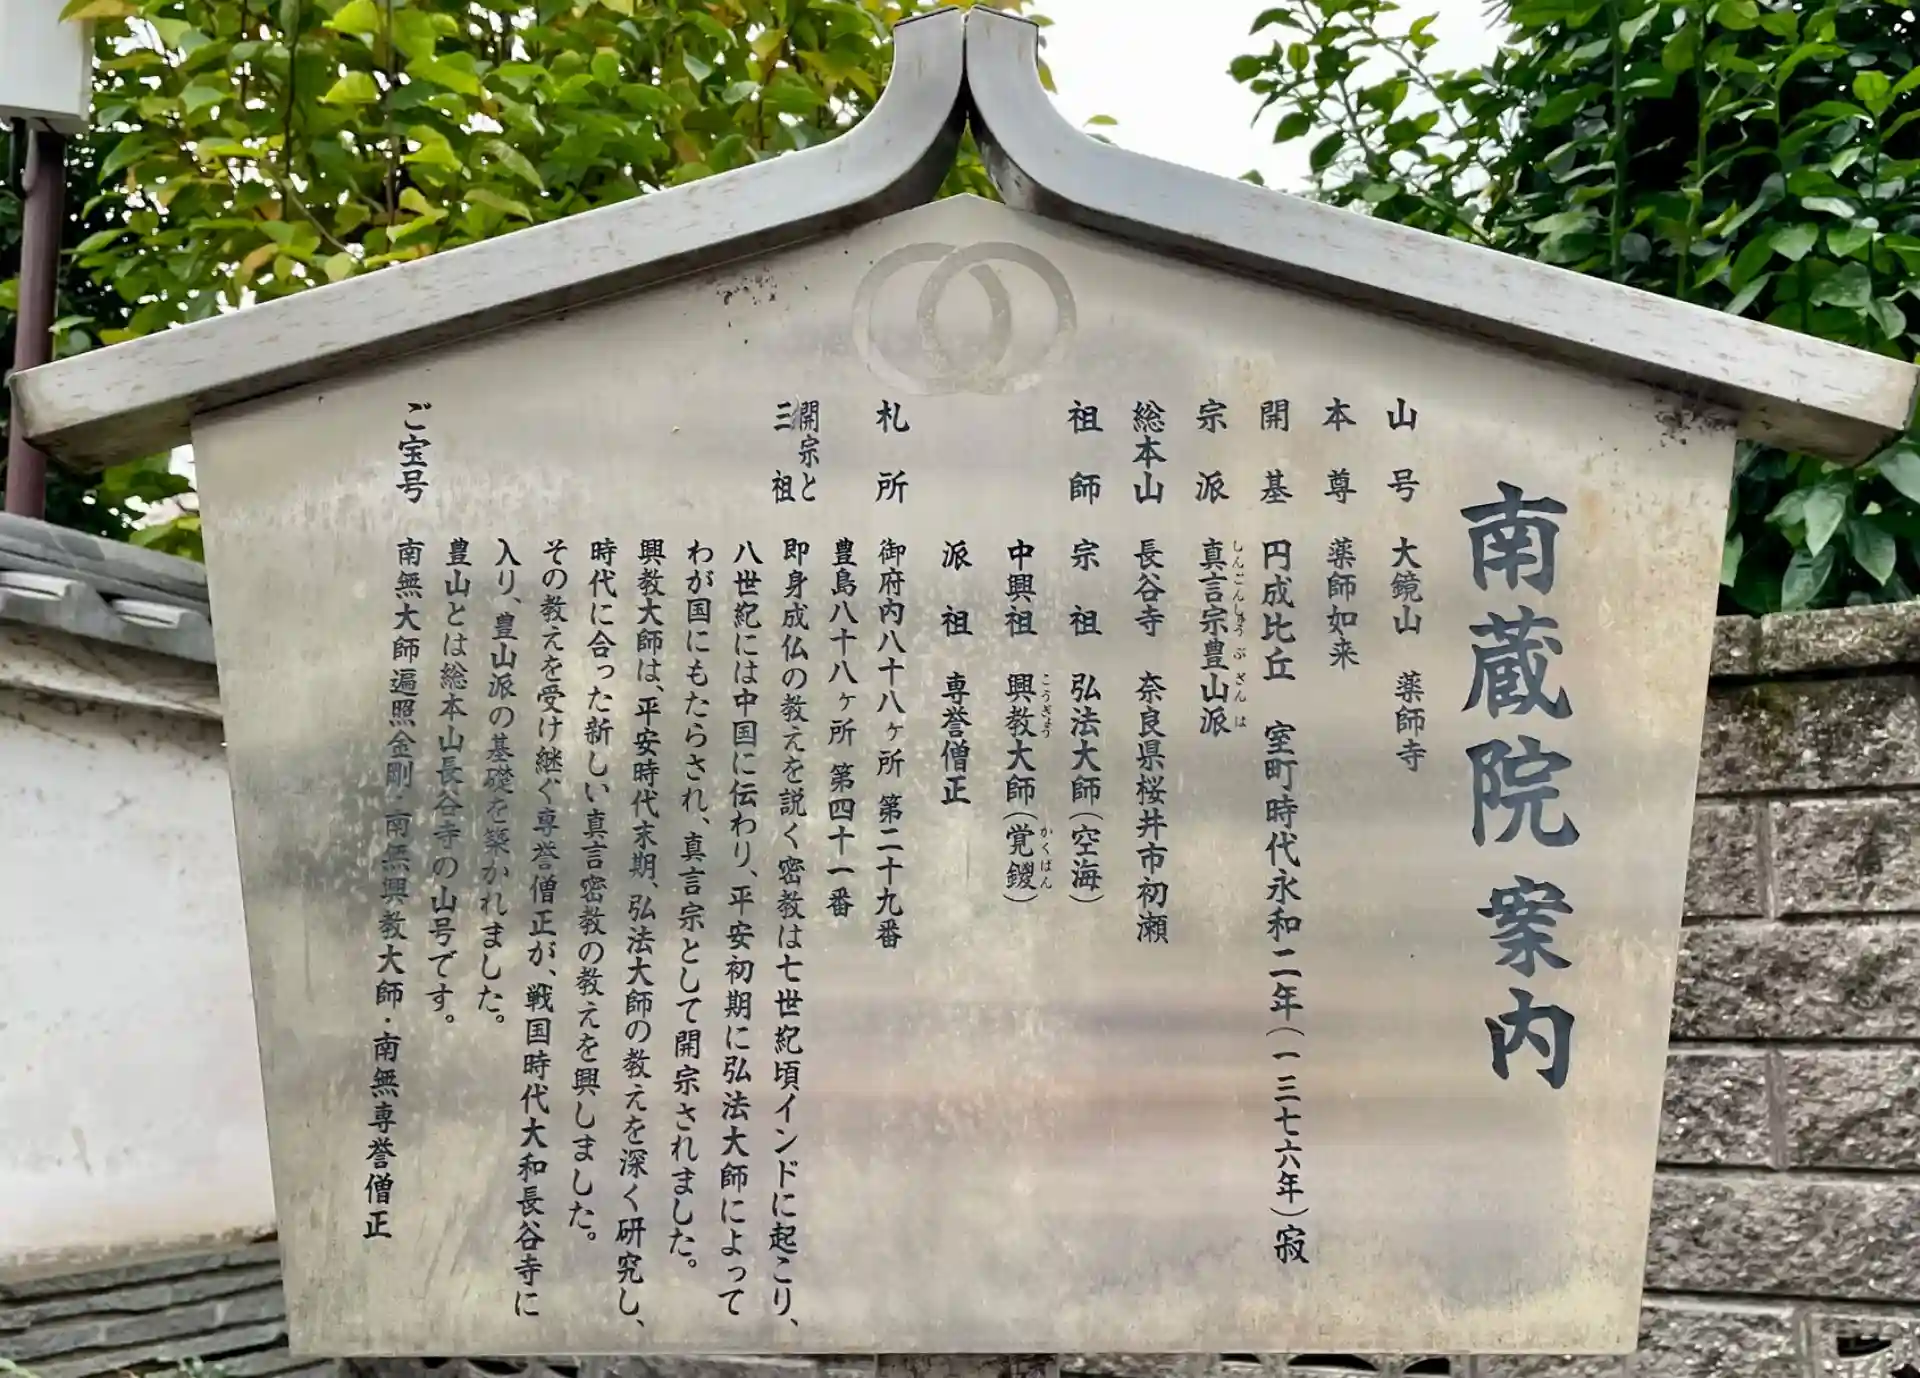 南蔵院案内
山号 大鏡山 薬師寺
本尊 薬師如来
開基 円成比丘 室町時代永和二年(一三七六年)寂
宗派 真言宗豊山派
しんごんしゅう ぶ ざん は
総本山 長谷寺 奈良県桜井市初瀬
祖師 宗祖 弘法大師(空海)
中興祖 興教大師(覚鑁)
こうぎょう かくばん
派祖 専誉僧正
札所 御府内八十八ヶ所 第二十九番
豊島八十八ヶ所 第四十一番
開宗と
三祖
即身成仏の教えを説く密教は七世紀頃インドに起こり、
八世紀には中国に伝わり、平安初期に弘法大師によって
わが国にもたらされ、真言宗として開宗されました。
興教大師は、平安時代末期、弘法大師の教えを深く研究し、
時代に合った新しい真言密教の教えを興しました。
その教えを受け継ぐ専誉僧正が、戦国時代大和長谷寺に
入り、豊山派の基礎を築かれました。
豊山とは総本山長谷寺の山号です。
ご宝号 南無大師遍照金剛・南無興教大師・南無専誉僧正